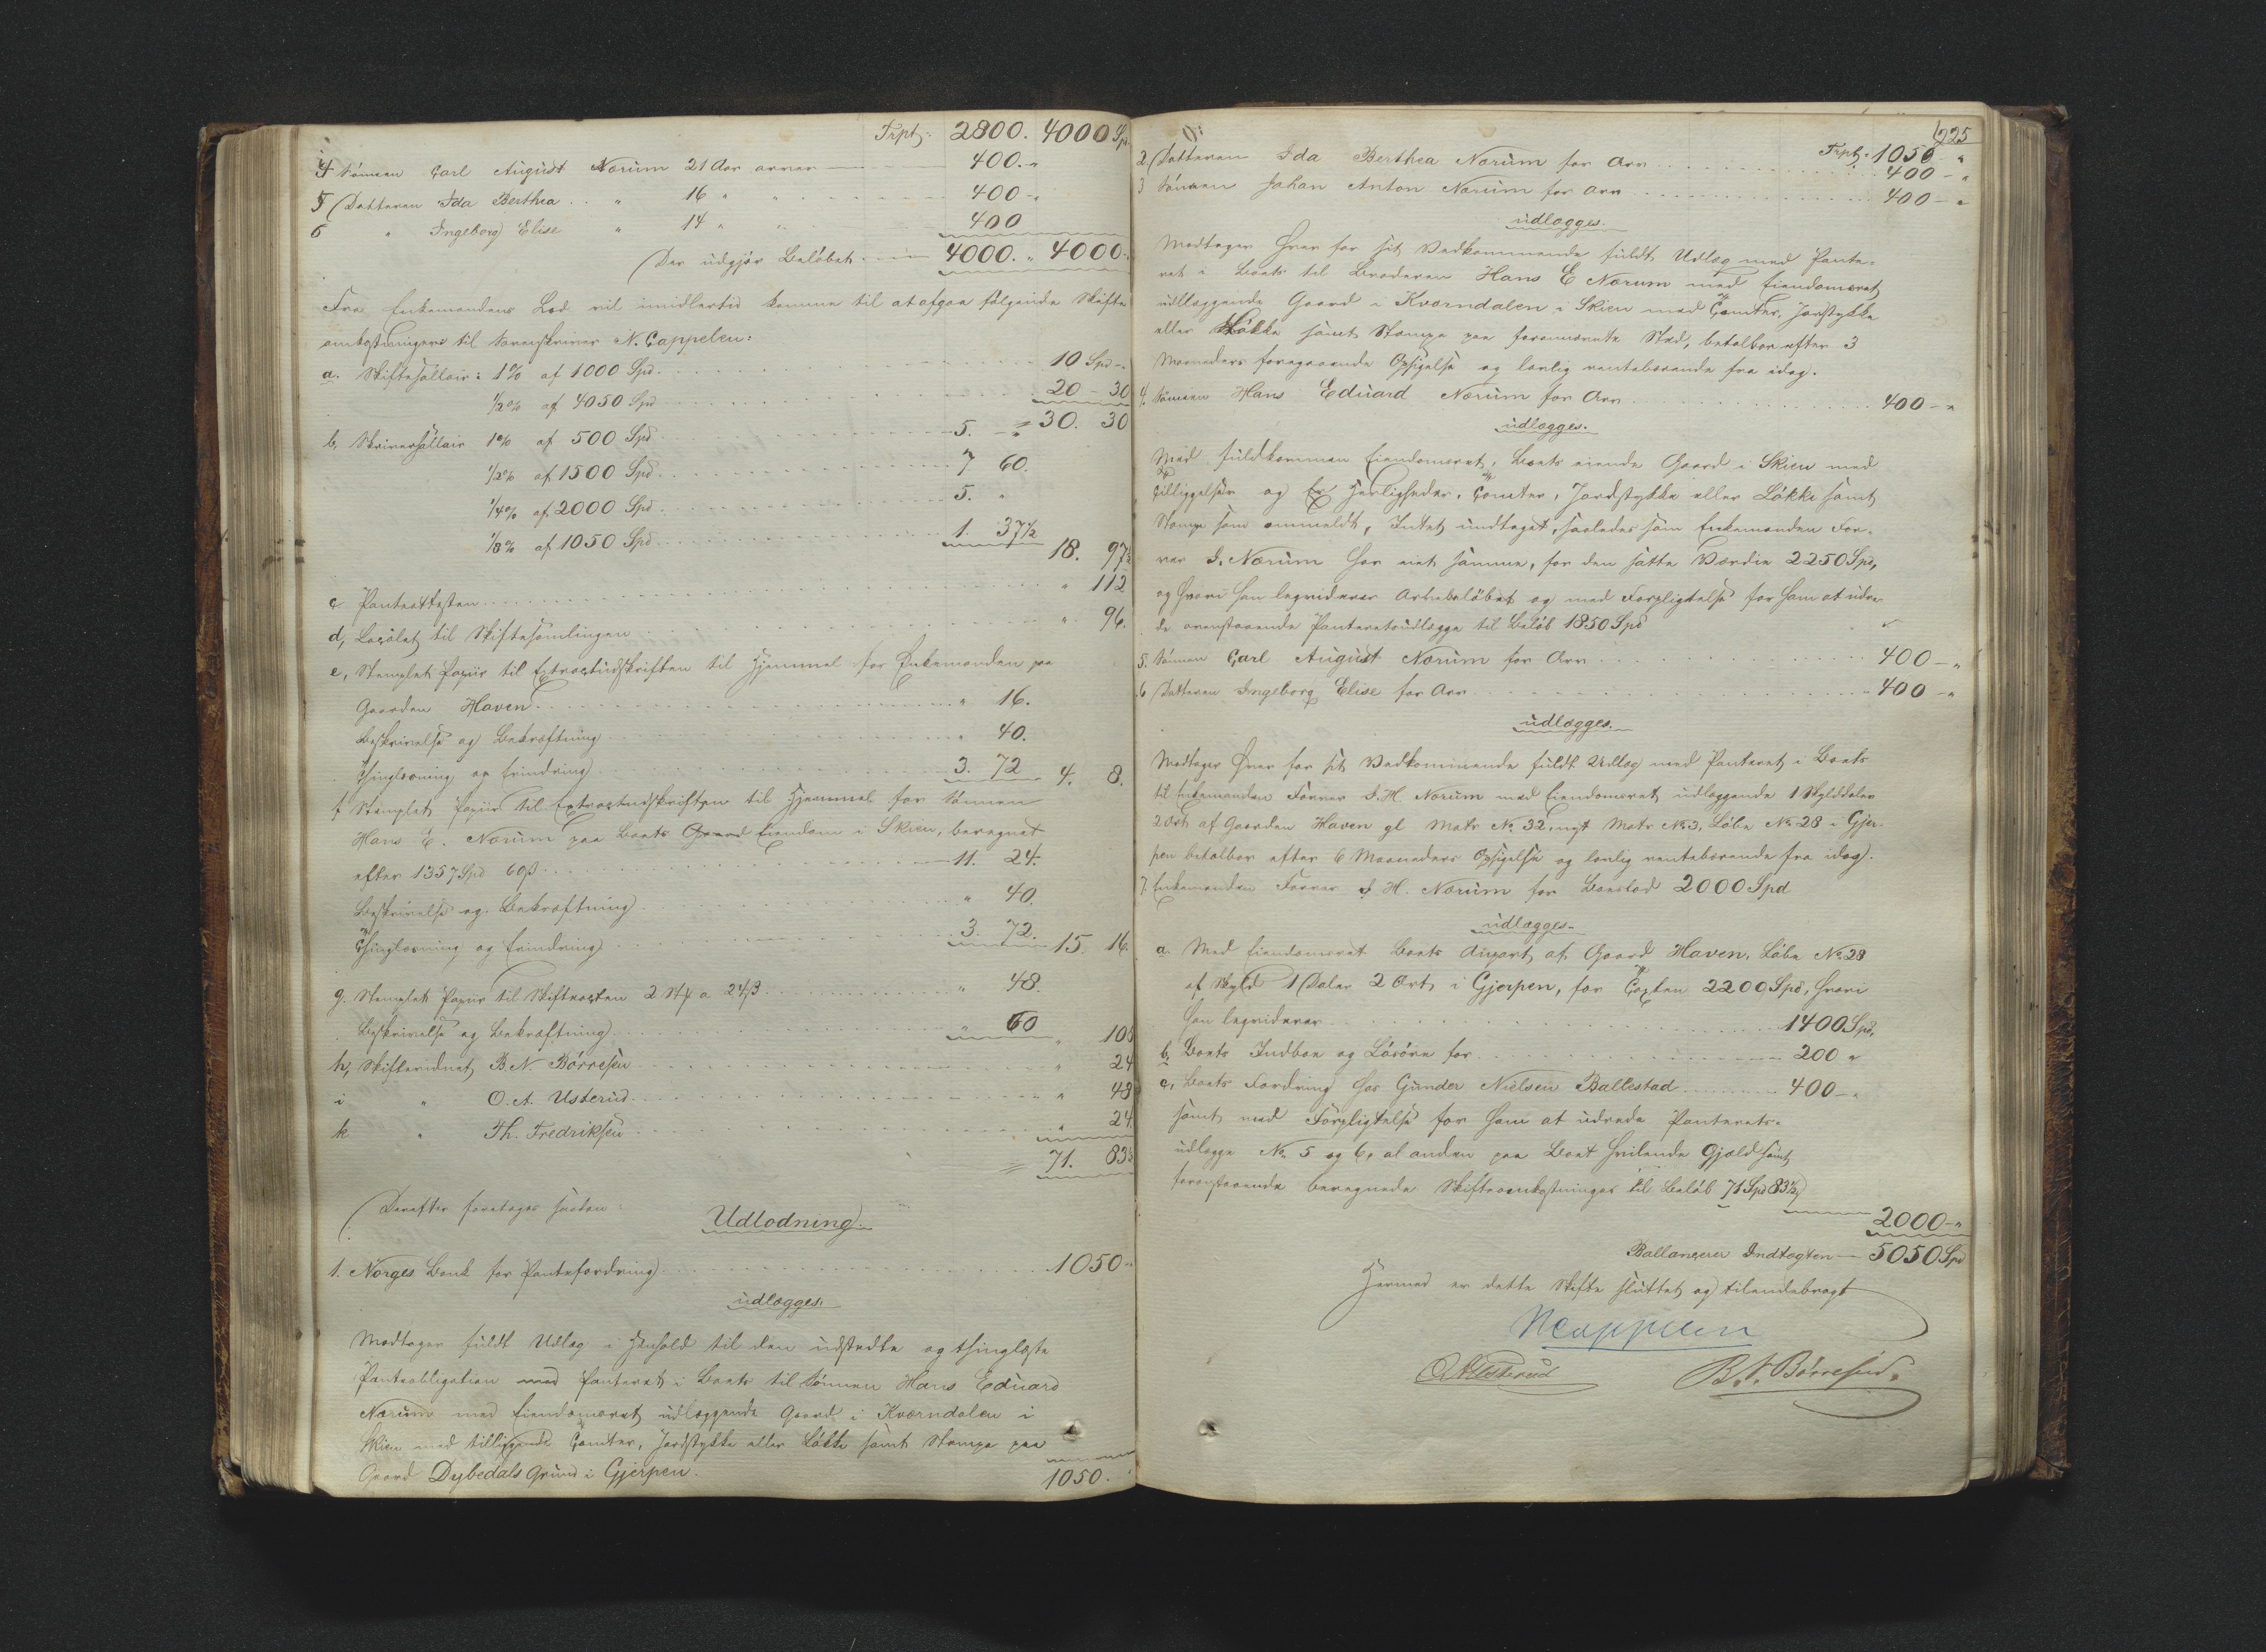 Trpt: 2800. 4000 Sp
4 Sønnen Carl August Nærum 21 Aar arver 400. "
5 Datteren Ida Berthea " 16 " " 400 - "
6 " Ingeborg Elise " 14 " " 400
Der udgjør Beløbet 4000. " 4000
Fra Enkemandens Lod vil imidlertid komme til at afgaa følgende Skifte
omkostninger til Sorenskriver N. Cappelen:
a. Skiftesallair: 1% af 1000 Spd. 10 Spd - "
1/2% af 4050 Spd 20 - 30
30. 30
b, Skriversallair 1% af 500 Spd 5. - "
1/2% af 1500 Spd 7 60.
1/4% af 2000 Spd 5. "
1/8% af 1050 Spd 1. 37 1/2
18. 97 1/2
c Panteattesten " 112
d, Localet til Skiftesamlingen " 96.
e, Stemplet Papiir til Extractudskriften til Hjemmel for Enkemanden paa
Gaarden Haven " 16.
Beskrivelse og Bekræftning " 40.
Thinglæsning og Erindring 3. 72 4. 8.
f Stemplet Papiir til Extractudskriften til Hjemmel for Sønnen
Hans E. Nærum paa Boets Eiendom i Skien, beregnet
efter 1357 Spd 60 β 11. 24.
Beskrivelse og Bekræftning " 40.
Thinglæsning og Erindring 3. 72. 15. 16
g. Stemplet Papiir til Skifteacten 2 Stk a 24 β " 48.
Beskrivelse og Bekræftning " 60 " 108
h, Skiftevidnet B. N. Børresen " 24
i " O. A. Usterud " 48
k " Th. Fredriksen " 24.
71. 83 1/2
Derefter foretoges saadan:
Udlodning
1. Norges Bank for Pantefordring 1050 - "
udlægges.
Modtager fuldt Udlæg i Henhold til den udstedte og thinglæste
Panteobligation med Panteret i Boets til Sønnen Hans Eduard
Nærum med Eiendomsret udlæggende Gaard i Kværndalen i
Skien med tilliggende Tomter, Jordstykke eller Løkke samt Stampe paa
Gaard Dybedals Grund i Gjerpen.
1050.
225
Trpt. 1050 "
2. Datteren Ida Berthea Nærum for Arv 400 - "
3 Sønnen Johan Anton Nærum for Arv 400 - "
udlægges.
Modtager hver for sit Vedkommende fuldt Udlæg med Pante-
ret i Boets til Broderen Hans E Nærum med Eiendomsret
udlæggende Gaard i Kværndalen i Skien med Tomter, Jordstykke
eller Løkke samt Stampe paa forannævnte Sted, betalbar efter 3
Maaneders foregaaende Opsigelse og lovlig rentebærende fra idag.
4. Sønnen Hans Eduard Nærum for Arv 400 - "
udlægges.
Med fuldkommen Eiendomsret, Boets eiende Gaard i Skien med
Tilliggelser og Herligheder, Tomter, Jordstykke eller Løkke samt
Stampe som anmeldt, Intet undtaget, saaledes som Enkemanden Far-
ver I. Nærum har eiet samme, for den satte Værdie 2250 Spd,
og hvori han leqviderer Arvebeløbet og med Forpligtelse for ham at udre-
de ovenstaaende Panteretsudlægge til Beløb 1850 Spd
5. Sønnen Carl August Nærum for Arv 400 - "
6 Datteren Ingeborg Elise for Arv 400 - "
udlægges.
Modtager hver for sit Vedkommende fuldt Udlæg med Panteret i Boets
til Enkemanden Farver I. H. Nærum med Eiendomsret udlæggende 1 Skylddaler
2 Ort af Gaarden Haven gl Matr No 32, nyt Matr No 3, Løbe No 28 i Gjer-
pen betalbar efter 6 Maaneders Opsigelse og lovlig rentebærende fra idag.
7. Enkemanden Farver I. H. Nærum for Boeslod 2000 Spd
udlægges.
a. Med Eiendomsret Boets Anpart af Gaard Haven, Løbe No 28
af Skyld 1 Daler 2 Ort i Gjerpen, for Taxten 2200 Spd, hvori
han leqviderer 1400 Spd,
b, Boets Indboe og Løsøre for 200 "
c, Boets Fordring hos Gunder Nielsen Ballestad 400 - "
samt med Forpligtelse for ham at udrede Panterets-
udlægge No 5 og 6, al anden paa Boet hvilende Gjæld samt
foranstaaende beregnede Skifteomkostninger til Beløb 71 Spd 83 1/2
2000 - "
Ballancerer Indtægten 5050 Spd
Hermed er dette Skifte sluttet og tilendebragt
NCappelen
OAUsterud B. N. Børresen.